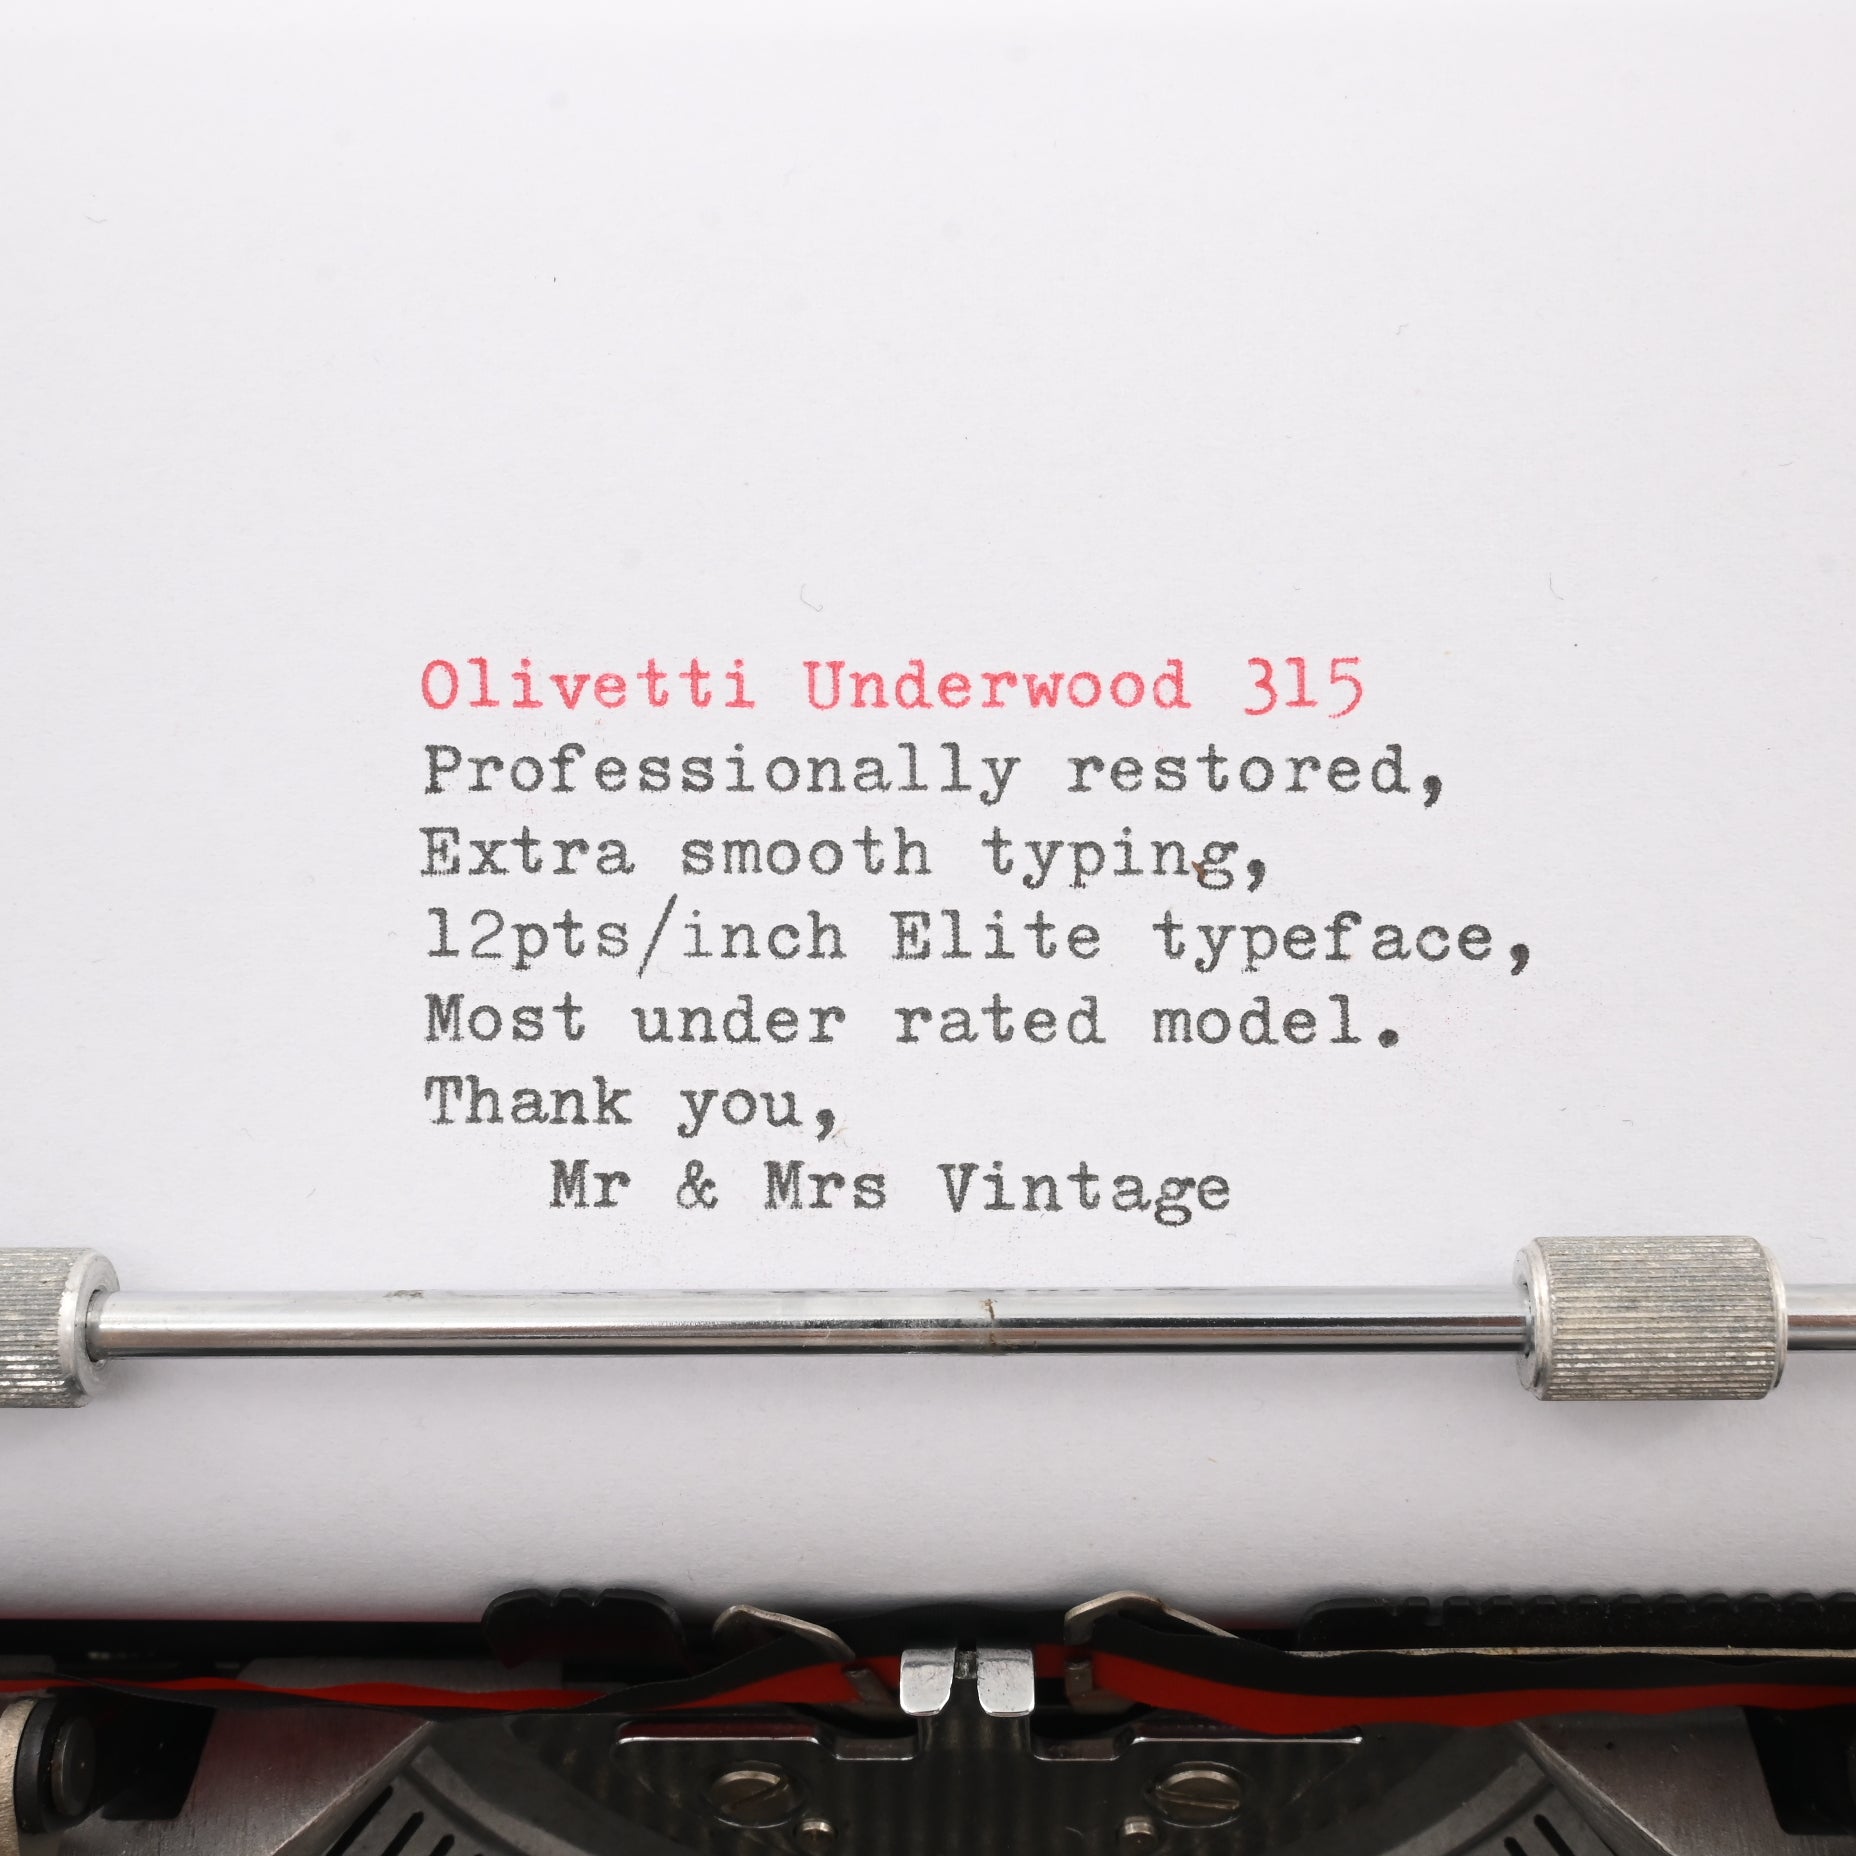 Olivetti Underwood 315
Professionally restored,
Extra smooth typing,
12pts/inch Elite typeface,
Most under rated model.
Thank you,
Mr & Mrs Vintage